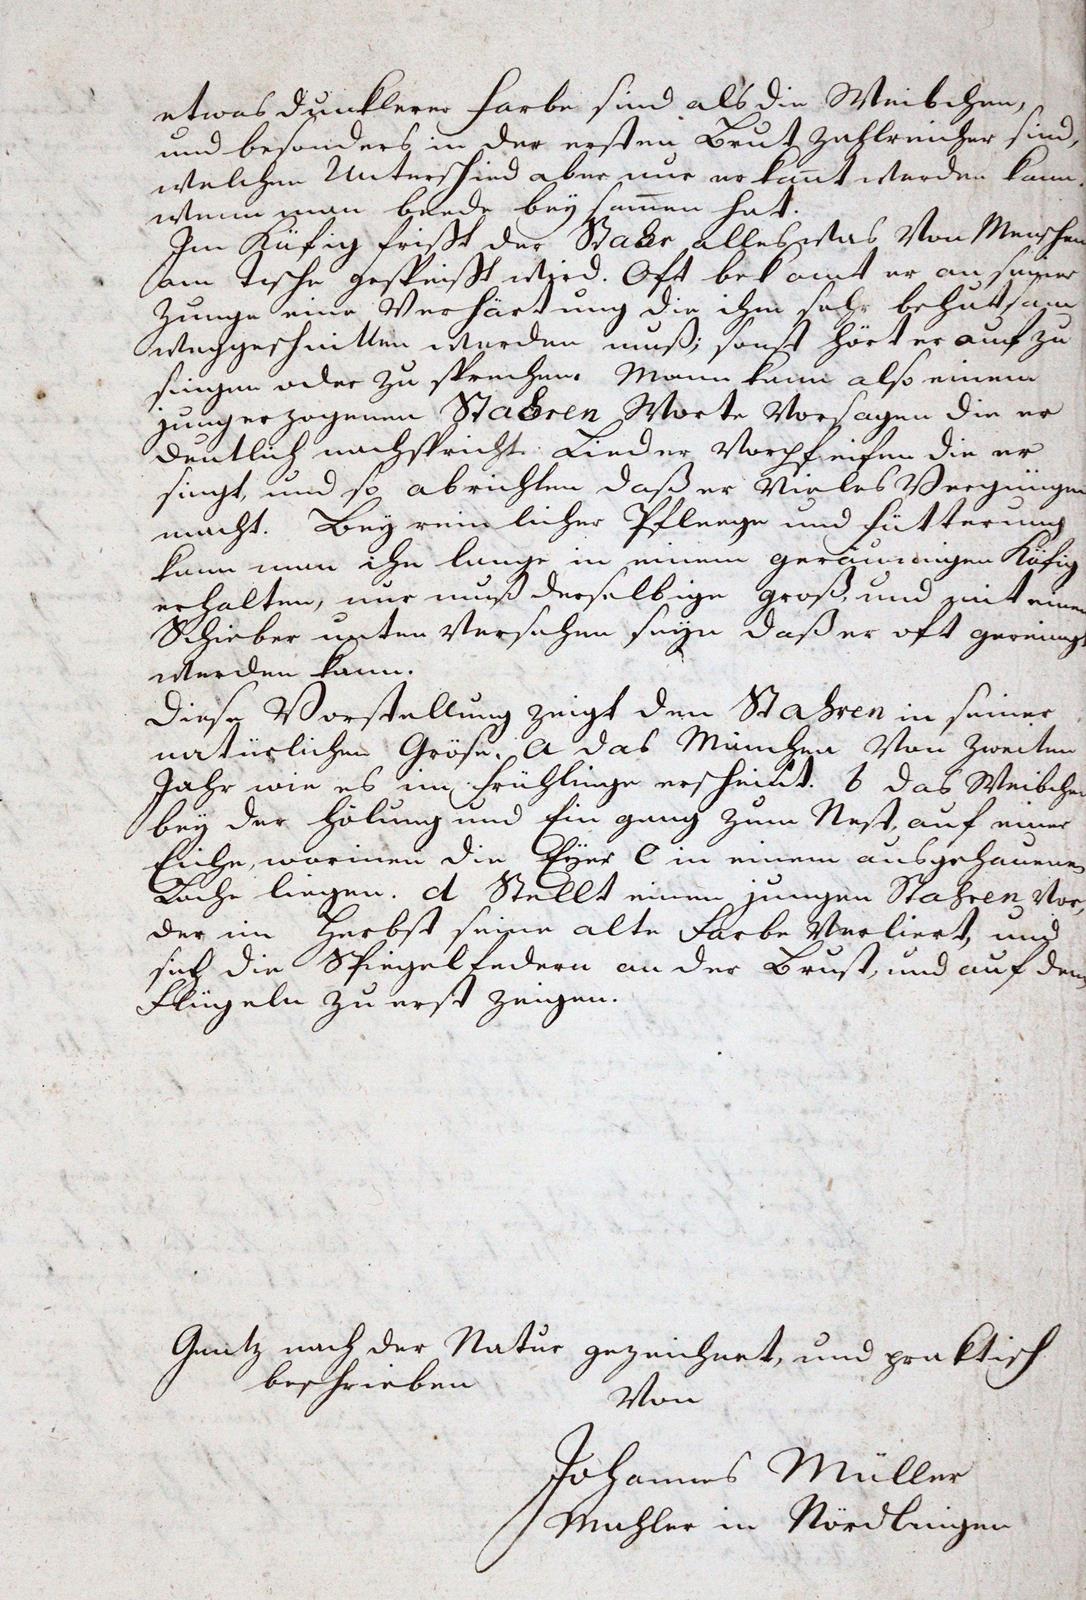 etwas dunklerer Farbe sind als die Weibchen,
und besonders in der ersten Brut zahlreicher sind,
welchen Unterschied aber nur erkannt werden kann.
wenn man beede beysam̅en hat.
Im Käfig frißt der Stahr alles was Von Menschen
am Tische gespeißt wird. Oft bekomt er an seiner
Zunge eine Verhärtung die ihm sehr behutsam
weggeschnitten werden muß; sonst hört er auf zu
singen oder zu sprechen. Mann kann also einem
jung erzogenen Stahren Worte Vorsagen die er
deutlich nachspricht. Lieder Vorpfeifen die er
singt, und so abrichten daß er Vieles Vergnügen
macht. Bey reinlicher Pfleege und Fütterung
kann man ihn lange in einem geräumigen Käfig
erhalten, nur muß derselbige groß, und mit einem
Schieber unten Versehen seyn daß er oft gereinigt
werden kann.
Diese Vorstellung zeigt den Stahren in seiner
natürlichen Gröse. a das Mänchen Von zweiten
Jahr wie es im Frühlinge erscheint. b das Weibchen
bey der Hölung und Eingang zum Nest, auf einer
Eiche, worinen die Eyer c in einem ausgehauenen
Loche liegen. d Stellt einen jungen Stahren Vor,
der im Herbst seine alte Farbe Verliert, und
sich die Spiegelfedern an der Brust, und auf den
Flügeln zu erst zeigen.
Gantz nach der Natur gezeichnet, und praktisch
beschrieben
Von
Johannes Müller
Mahler in Nördlingen